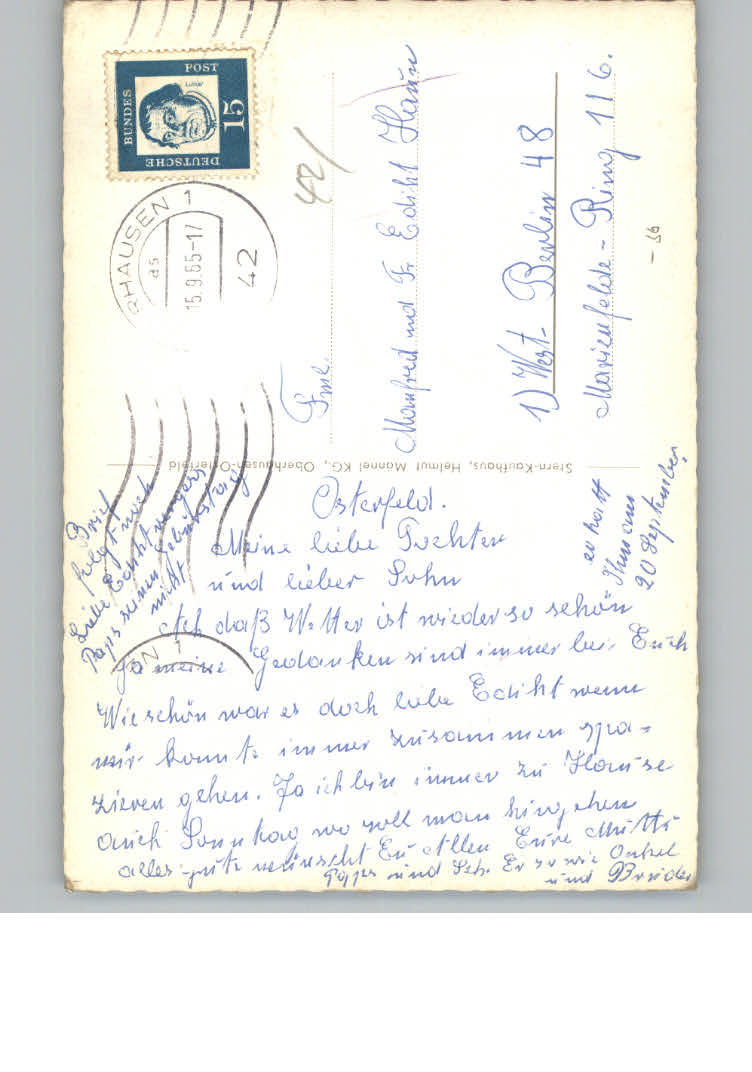 DEUTSCHE
BUNDES
POST
15
Luther
RHAUSEN 1
as
15.9.65-17
42
42/
Fme.
Manfred und Fr Edikt Haun
1) West-Berlin 48
Marienfelde-Ring 116.
- 36
Stern-Kaufhaus, Helmut Mannel KG., Oberhausen-Osterfeld
Osterfeld.
Meine liebe Tochter
und lieber Sohn
Ach daß Wetter ist wieder so schön
Ja meine Gedanken sind immer bei Euch
Wie schön war es doch liebe Edikt wenn
wir konnte immer zusammen spa=
zieren gehen. Ja ich bin immer zu Hause
auch Sonntag wo soll man hingehen
alles gute wünscht Eu Allen Eure Mutti
Papps und so wie Onkel
und Bruder
Brief
folgt noch
Liebe
Papps seinen Geburtstag
nicht
er hatt
Ihm am
20 September.
N 1